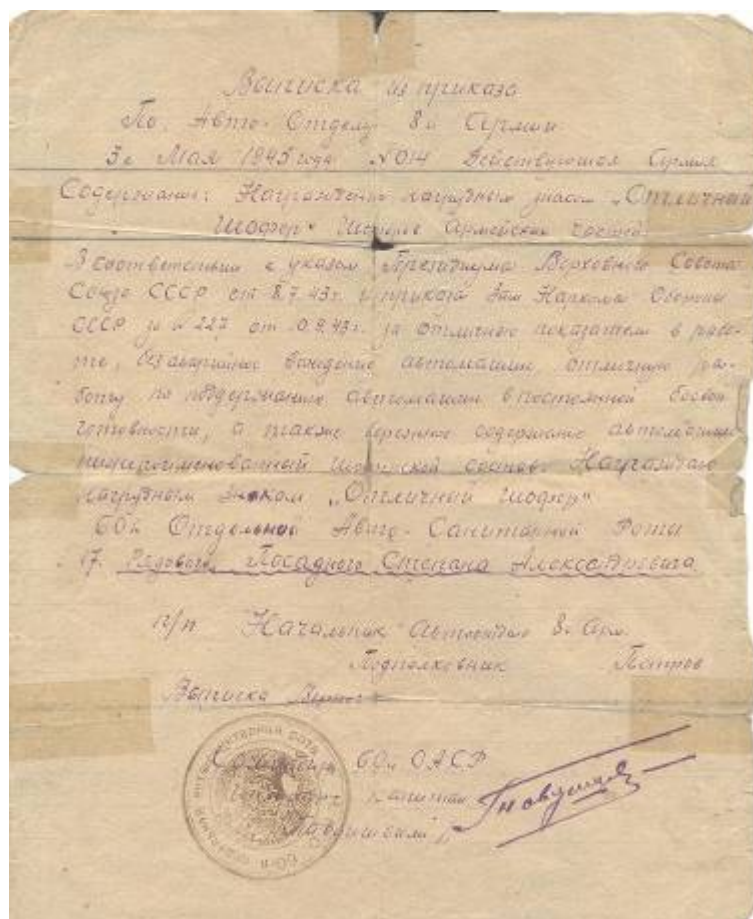 Выписка из приказа
По Авто-Отделу 8й Армии
3е Мая 1945 года №014 Действующая Армия
Содержание: Награждение нагрудным знаком „Отличный
Шофер"  Армейских частей.
В соответствии с указом Президиума Верховного Совета
Союза СССР от 8.7.43г. и приказа Зам Наркома Обороны
СССР за № 227 от 0.9.43г. за отличные показатели в рабо-
те, безаварийное вождение автомашин, отличную ра-
боту по поддержанию автомашин в постоянной боевой
готовности, а также бережное содержание автомашины
нижепоименованный  состав Награждаю
нагрудным знаком „Отличный шофер"
60й Отдельной Авто-Санитарной Роты
17. Рядового Посадного Степана Александровича
п/п Начальник автоотдела 8й Арм.
Подполковник Петров
Выписка Верна:
60й ОАСР
капитан